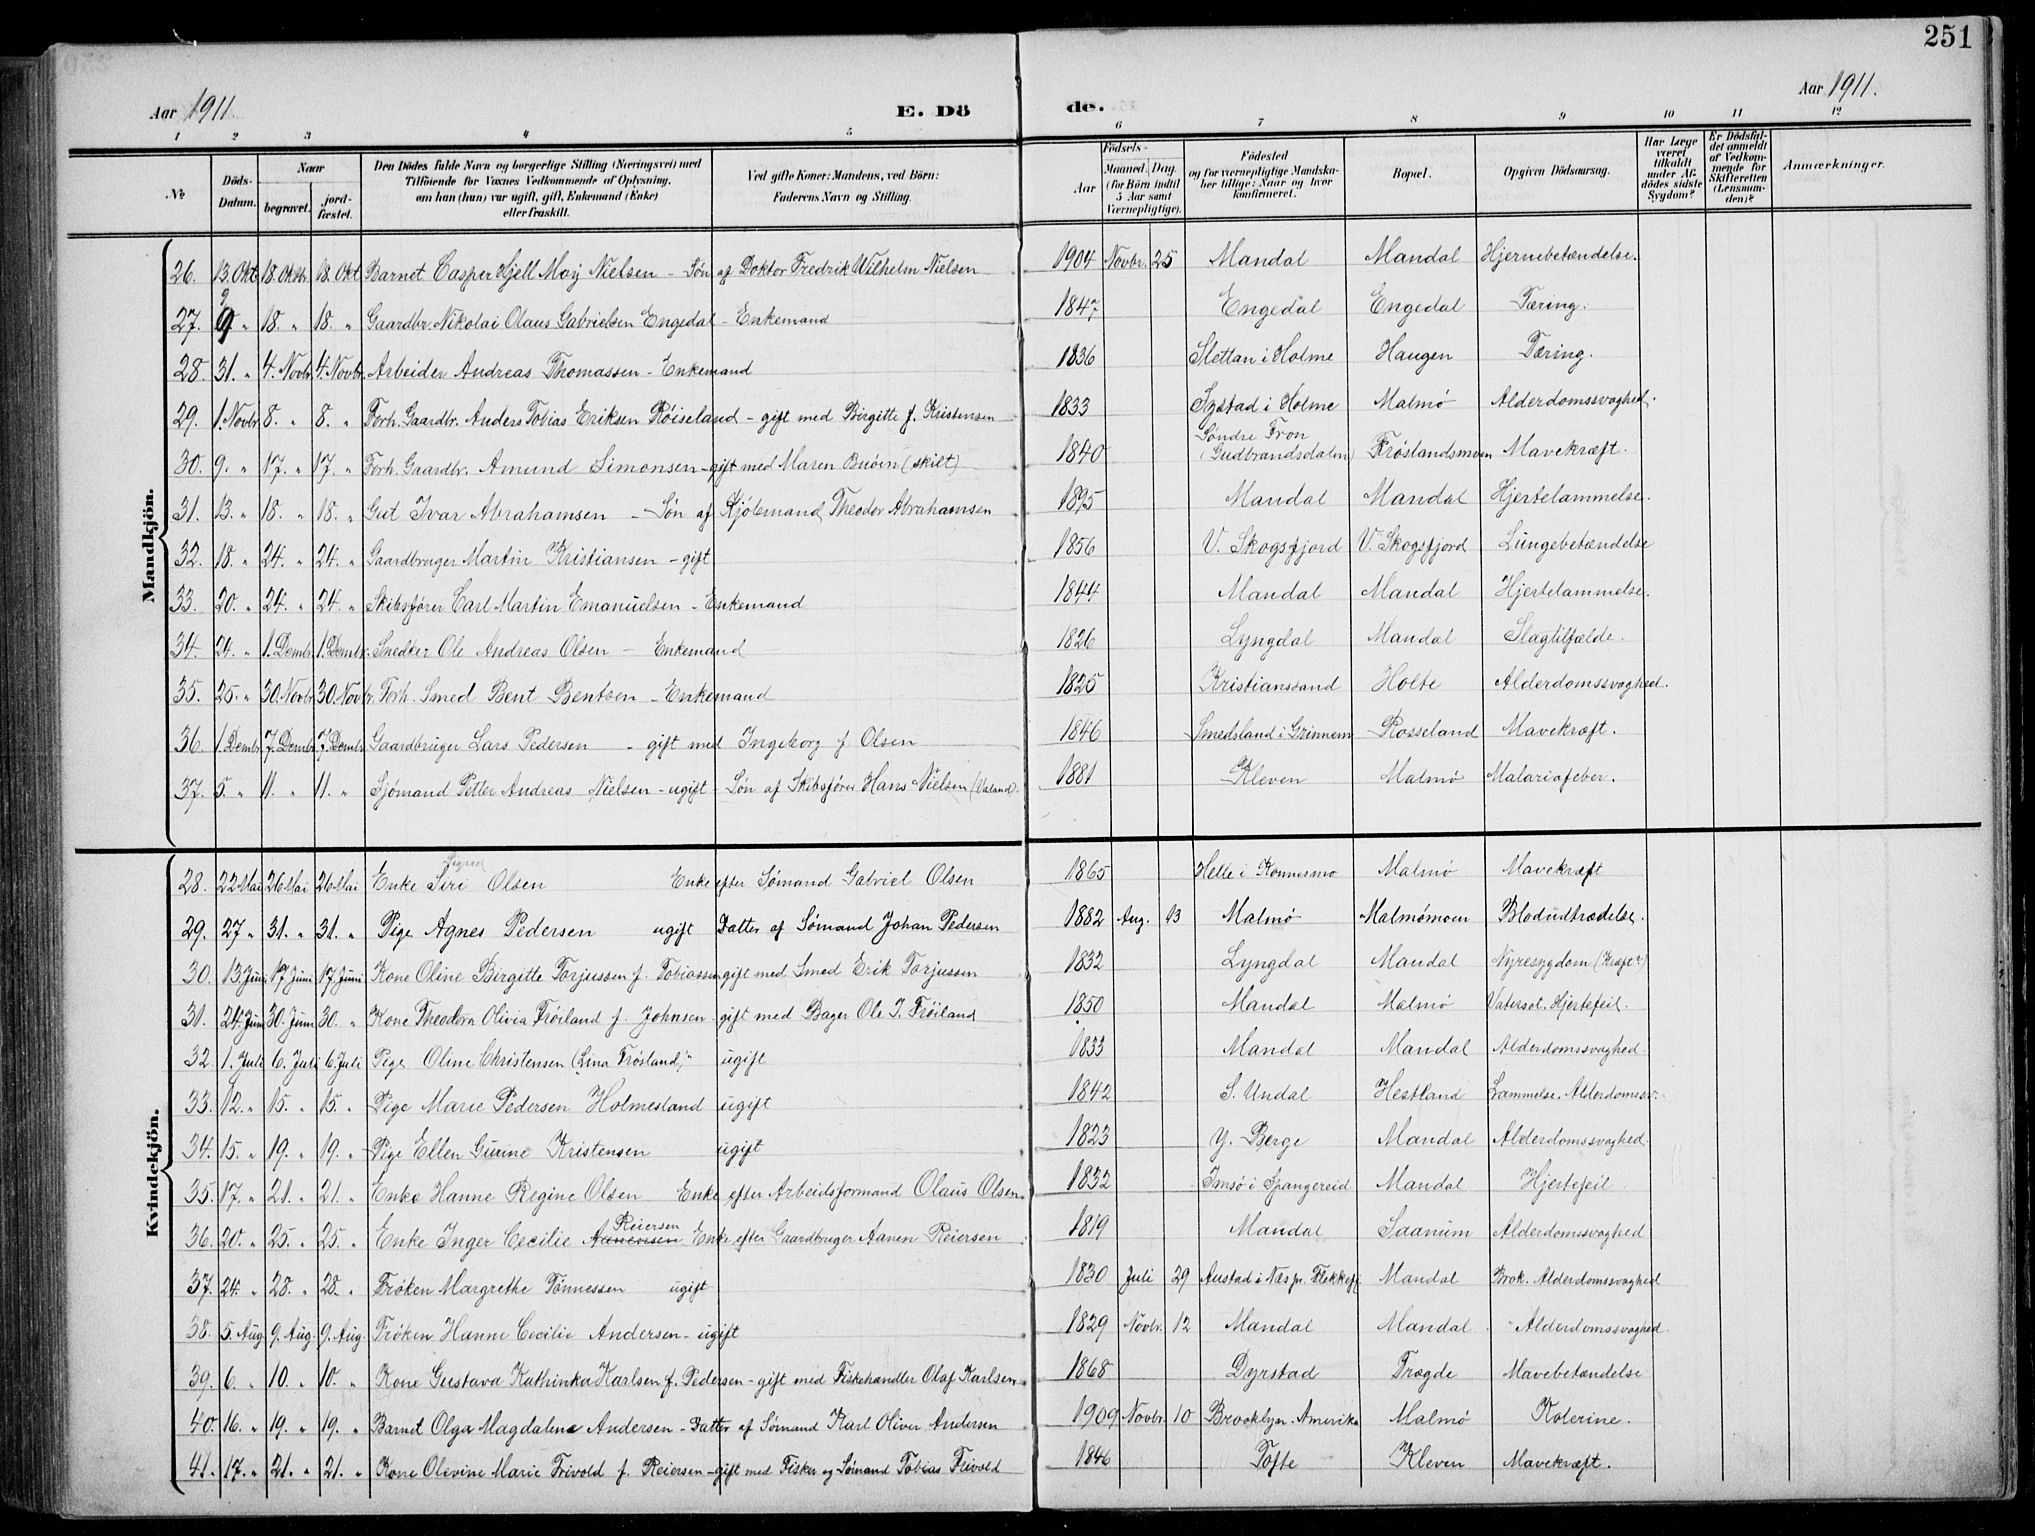 251
Aar 1911.
E. Dö
de.
Aar 1911.
1 2 3 4 5 6 7 8 9 10 11 12
№
Döds-Datum.
Naar
begravet.
jord-fæstet.
Den Dödes fulde Navn og borgerlige Stilling (Næringsvei) med
Tilföiende for Voxnes Vedkommende af Oplysning,
om han (hun) var ugift, gift, Enkemand (Enke)
eller fraskilt.
Ved gifte Koner: Mandens, ved Börn:
Faderens Navn og Stilling.
Födsels-
Aar
Maaned. Dag.
(for Börn indtil
5 Aar samt
Værnepligtige).
Födested
og for værnepligtige Mandska-
ber tillige: Naar og hvor
konfirmeret.
Bopæl.
Opgiven Dödsaarsag.
Har Læge
været
tilkaldt
under Af-
dödes sidste
Sygdom?
Er Dödsfal-
det anmeldt
af Vedkom-
mende for
Skifteretten
(Lensman-
den)?
Anmærkninger.
Mandkjön.
26. 13. Okt. 18. Oktbr. 18. Okt. Barnet Casper Kjell Moy Nielsen - Søn af Doktor Fredrik Wilhelm Nielsen 1904 Novbr. 25 Mandal Mandal Hjernebetændelse.
27. 9 " 18. " 18. " Gaardbr. Nikolai Olaus Gabrielsen Engedal - Enkemand 1847 Engedal Engedal Tæring.
28. 31. " 4. Novbr. 4. Novbr. Arbeider Andreas Thomassen - Enkemand 1836 Slettan i Holme Haugen Tæring.
29. 1. Novbr. 8. " 8. " Forh. Gaardbr. Anders Tobias Eriksen Röiseland - gift med Birgitte f. Kristensen 1833 Systad i Holme Malmø Alderdomssvaghed.
30. 9. " 17. " 17. " Forh. Gaardbr. Amund Simonsen - gift med Maren Buøen (skilt) 1840 Søndre Fron (Gudbrandsdalen) Frøslandsmoen Mavekræft.
31. 13. " 18. " 18. " Gut Ivar Abrahamsen - Søn af Kjøbmand Theodor Abrahamsen 1895 Mandal Mandal Hjertelammelse.
32. 18. " 24. " 24. " Gaardbruger Martin Kristiansen - gift 1856 V. Skogsfjord V. Skogsfjord Lungebetændelse
33. 20. " 24. " 24. " Skibsfører Carl Martin Emanuelsen - Enkemand 1844 Mandal Mandal Hjertelammelse.
34. 24. " 1. Dembr. 1. Dembr. Snedker Ole Andreas Olsen - Enkemand 1826 Lyngdal Mandal Slagtilfælde.
35. 25. " 30. Novbr. 30. Novbr. Forh. Smed Bent Bentsen - Enkemand 1825 Kristianssand Holte Alderdomssvaghed.
36. 1. Dembr. 7. Dembr. 7. Dembr. Gaardbruger Lars Pedersen - gift med Ingeborg f. Olsen 1846 Smedsland i Grinnem Rosseland Mavekræft.
37. 5. " 11. " 11. " Sjömand Petter Andreas Nielsen - ugift - Søn af Skibsfører Hans Nielsen (Valand). 1881 Kleven Malmø Malariafeber.
Kvindekjön.
Sigrid
28. 22 Mai 26 Mai 26 Mai Enke Siri Olsen Enke efter Sømand Gabriel Olsen 1865 Helle i Konnesmo Malmø Mavekræft
29. 27 " 31. " 31. " Pige Agnes Pedersen ugift Datter af Sømand Johan Pedersen 1882 Aug. 13 Malmø Malmømoen Blodudtrædelse.
30. 13. Juni 17 Juni 17. Juni Kone Oline Birgitte Torjussen f. Tobiassen gift med Smed Erik Torjussen 1832 Lyngdal Mandal Nyresygdom (Kræft?)
31. 24. Juni 30. Juni 30. " Kone Theodora Olivia Fröiland f. Johnsen - gift med Bager Ole T. Fröiland 1850 Mandal Malmø Vatersot. Hjertefeil.
32. 1. Juli 6. Juli 6 Juli Pige Oline Christensen (Lina Frøsland) ugift 1833 Mandal Mandal Alderdomssvaghed.
33. 12. " 15. " 15. " Pige Marie Pedersen Holmesland ugift 1842 S. Undal Hestland Lammelse. Alderdomssv.
34. 15. " 19. " 19. " Pige Ellen Gurine Kristensen ugift 1823 Y. Berge Mandal Alderdomssvaghed
35. 17. " 21. " 21. " Enke Hanne Regine Olsen Enke efter Arbeidsformand Olaus Olsen. 1832 Imsø i Spangereid Mandal Hjertefeil.
Reiersen
36. 20. " 25. " 25. " Enke Inger Cecilie Aanensen Enke efter Gaardbruger Aanen Reiersen 1819 Mandal Saanum Alderdomssvaghed
37. 24. " 28. " 28. " Frøken Margrethe Tønnessen ugift 1830 Juli 29 Austad i Næs pr. Flekkefj. Mandal Brok. Alderdomssvaghed
38. 5. Aug 9. Aug. 9. Aug. Frøken Hanne Cecilie Andersen - ugift 1829 Novbr. 12 Mandal Mandal Alderdomssvaghed.
39. 6. " 10. " 10. " Kone Gustava Kathinka Karlsen f. Pedersen - gift med Fiskehandler Olaf Karlsen 1868 Dyrstad Tregde Mavebetændelse
40. 16. " 19. " 19. " Barnet Olga Magdalene Andersen - Datter af Sømand Karl Oliver Andersen 1909 Novbr. 10 Brooklyn. Amerika Malmø Kolerine.
41. 17. " 21. " 21. " Kone Olevine Marie Frivold f. Reiersen - gift med Fisker og Sømand Tobias Frivold 1846 Tofte Kleven Mavekræft.